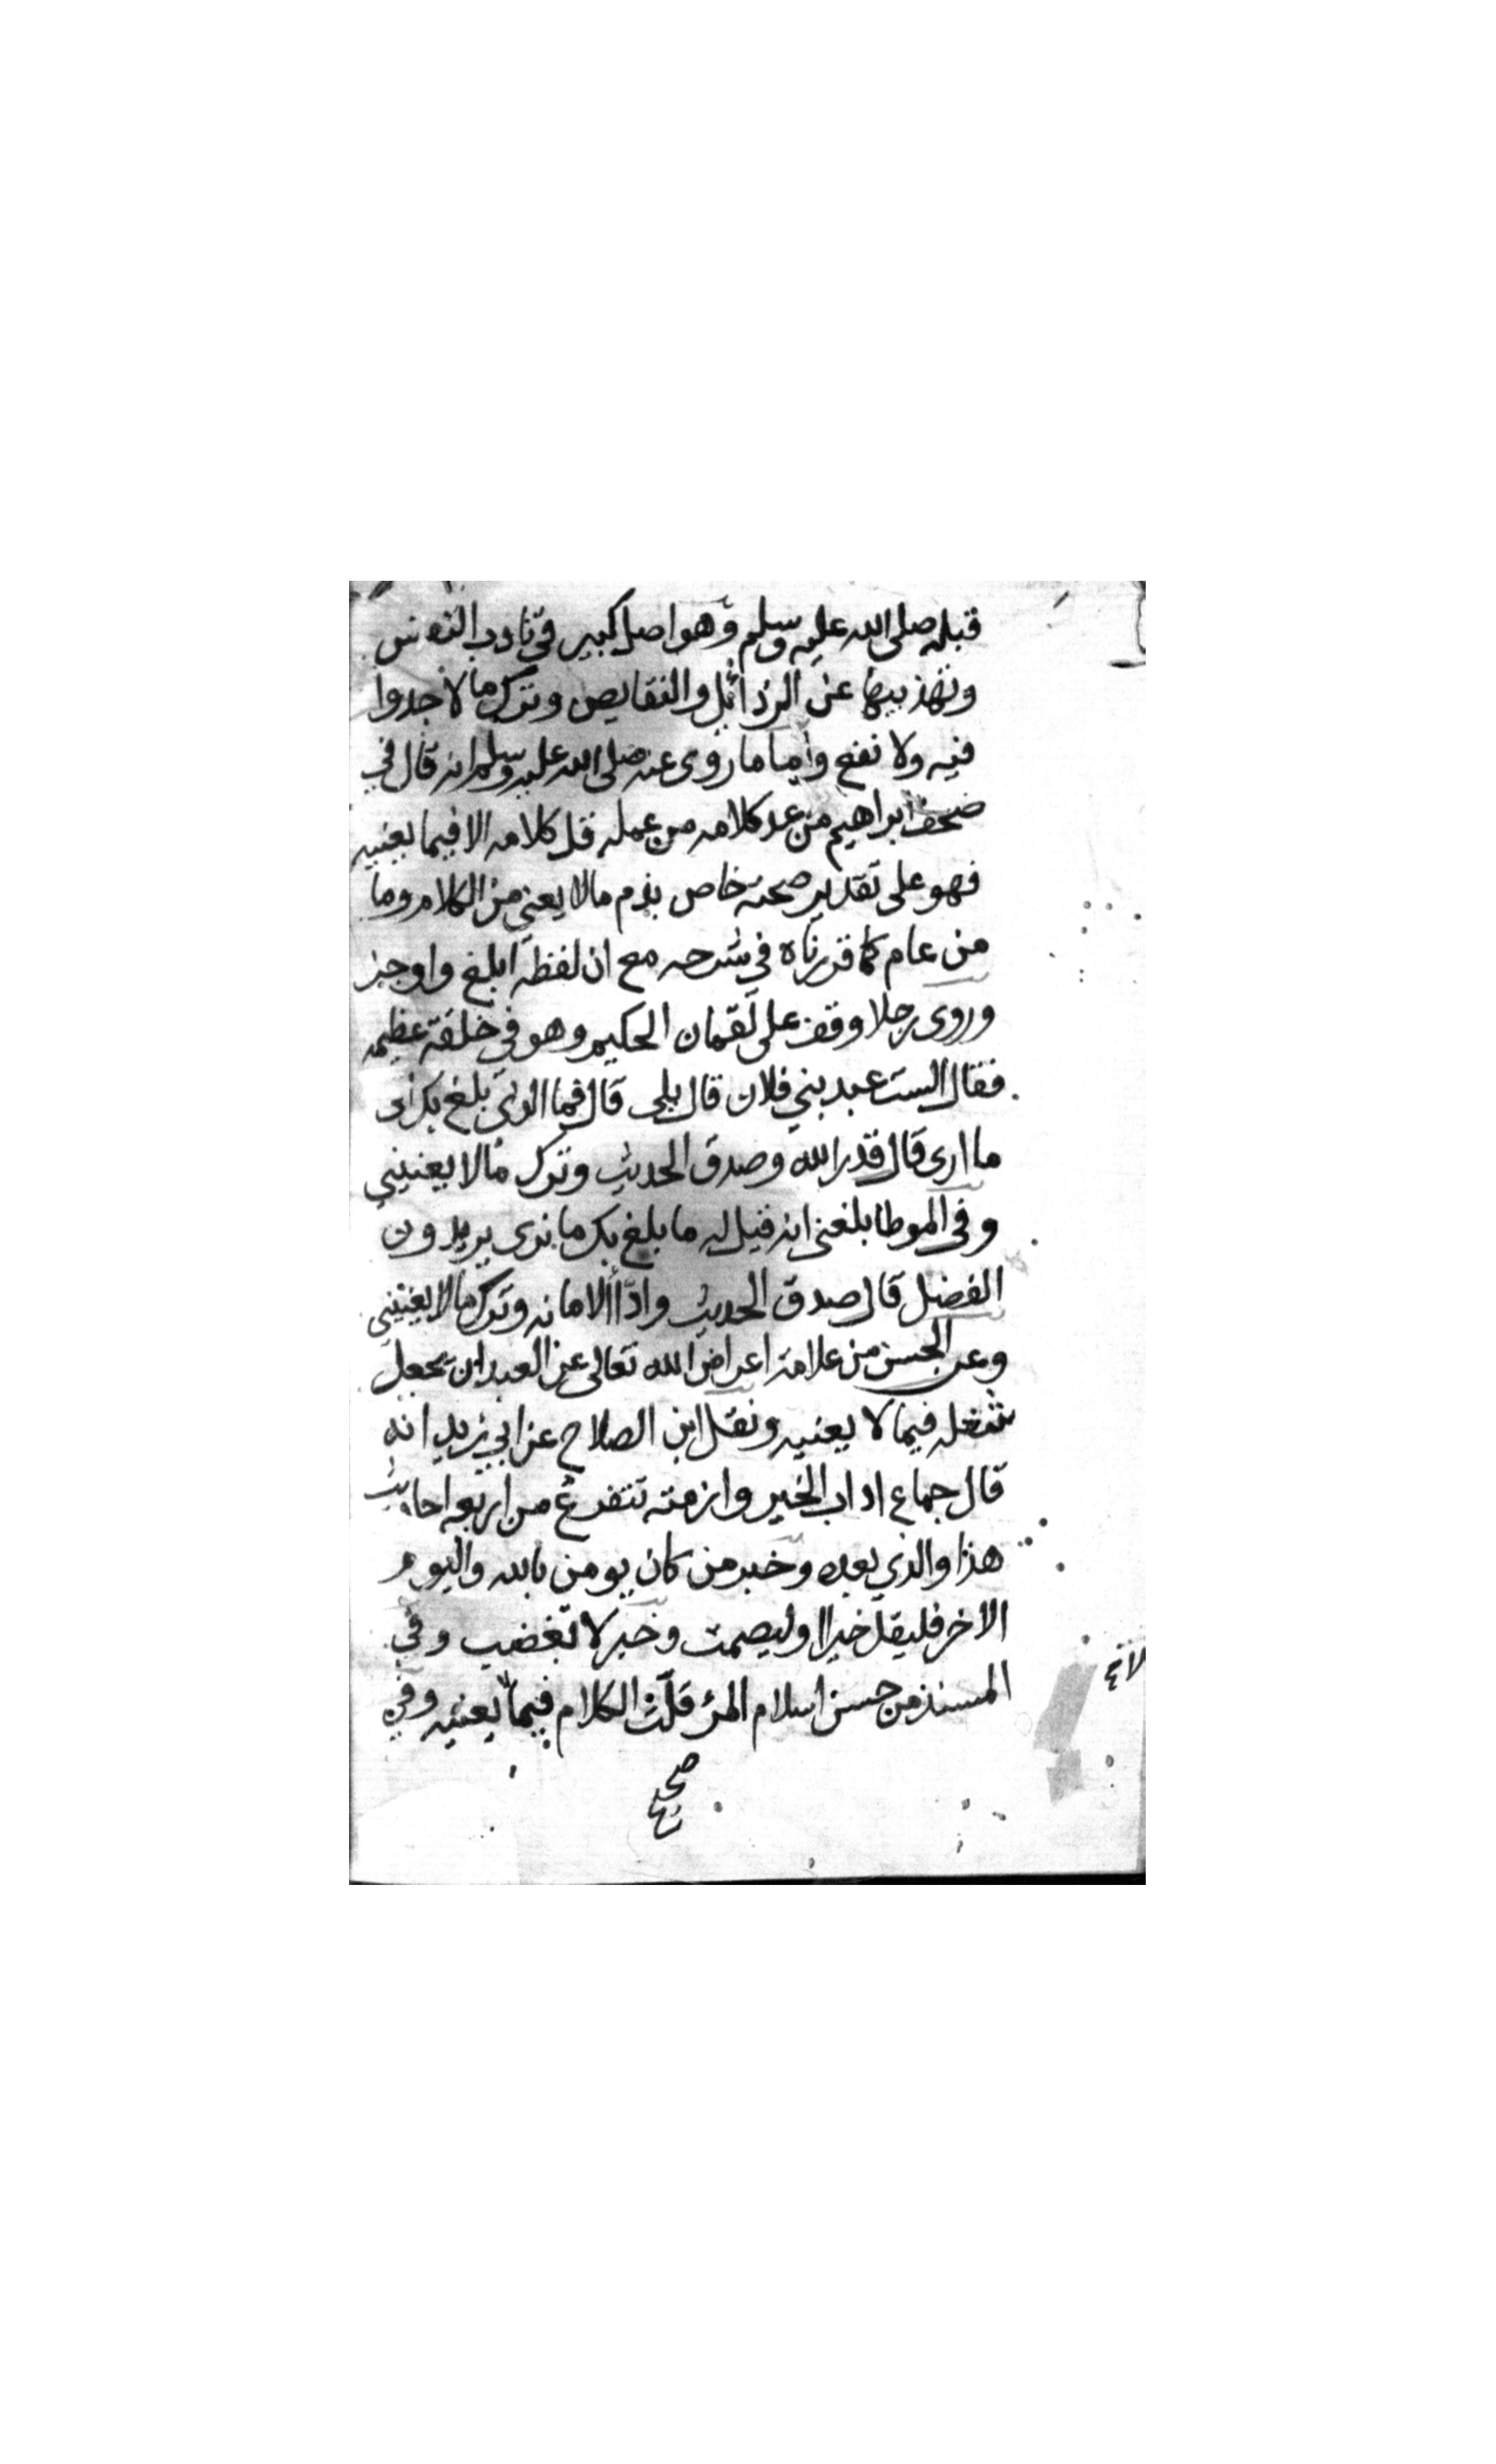 قبله صلى الله عليه وسلم وهو اصل كبير في تاديب النفوس
وتهذيبها عن الرذائل والنقايص وترك ما لا جدوا
فيه ولا نفع واما ما روى عنه صلى الله عليه وسلم انه قال في
صحف ابراهيم من عد كلامه من عمله قل كلامه الا فيما يعنيه
فهو على تقدير صحته خاص بذم ما لا يعني من الكلام وما
من عام كما قررناه في شرحه مع ان لفظه ابلغ واوجز
وروى رجلا وقف على لقمان الحكيم وهو في حلقة عظيمه
فقال الست عبد بني فلان قال بلى قال فما الذي بلغ بك
ما ارى قال قدر الله وصدق الحديث وترك ما لا يعنيني
وفي الموطا بلغني انه قيل له ما بلغ بك ما نرى يريدون
الفضل قال صدق الحديث وادّاالامانه وترك ما لا يعنيني
وعن الحسن من علامة اعراض الله تعالى عن العبد ان يجعل
شغله فيما لا يعنيه ونقل ابن الصلاح عن ابي زيد انه
قال جماع اداب الخير وازمته تتفرع من اربعه احاديث
هذا والذي بعده وخبر من كان يومن بالله واليوم
الاخر فليقل خيرا اوليصمت وخبر لا تغضب وفي
المسند من حسن اسلام المرء قلة الكلام فيما لا يعنيه وفي
صح